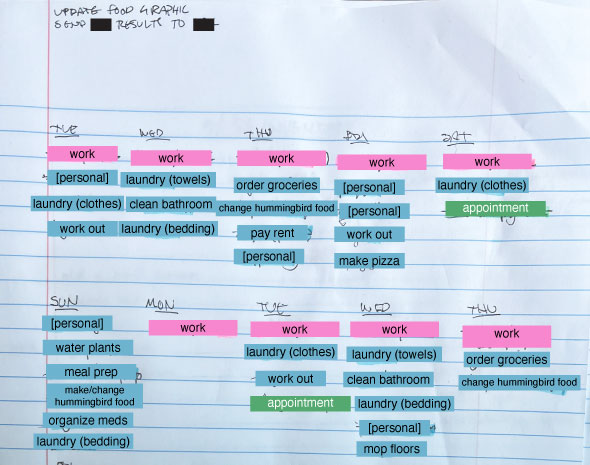 UPDATE FOOD GRAPHIC
SEND RESULTS TO
TUE
work
[personal]
laundry (clothes)
work out
WED
work
laundry (towels)
clean bathroom
laundry (bedding)
THU
work
order groceries
change hummingbird food
pay rent
[personal]
FRI
work
[personal]
[personal]
work out
make pizza
SAT
work
laundry (clothes)
appointment
SUN
[personal]
water plants
meal prep
make/change
hummingbird food
organize meds
laundry (bedding)
MON
work
TUE
work
laundry (clothes)
work out
appointment
WED
work
laundry (towels)
clean bathroom
laundry (bedding)
[personal]
mop floors
THU
work
order groceries
change hummingbird food